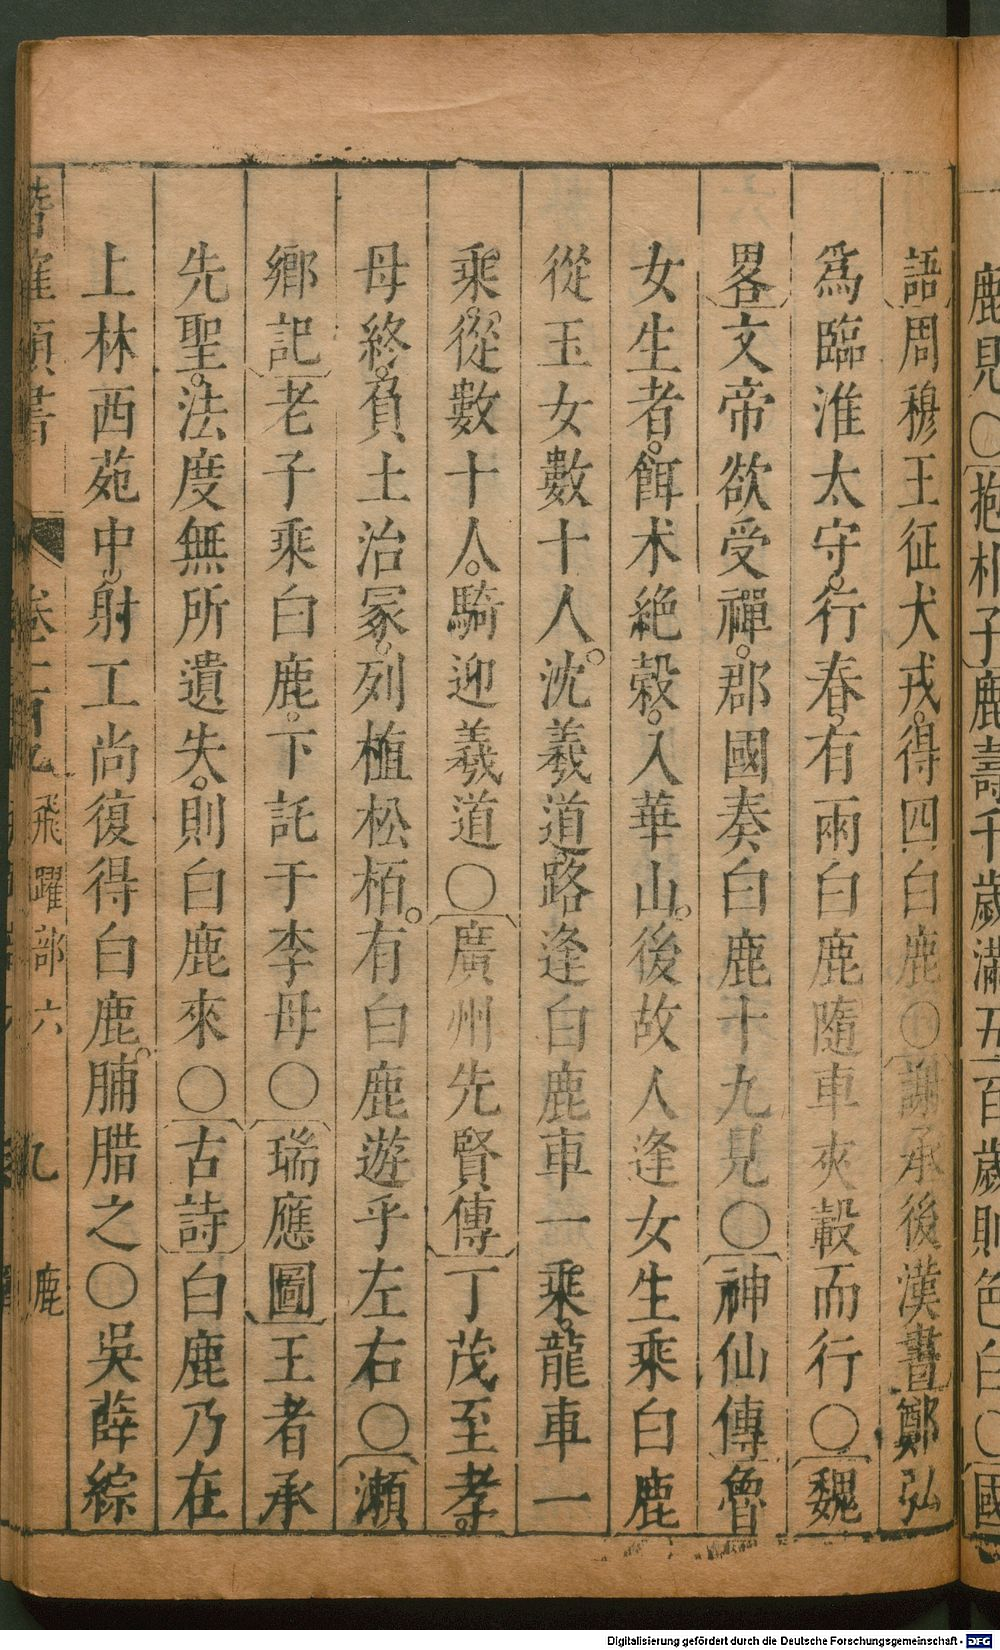 鹿見〇抱朴子鹿壽千歲滿五百歲則色白〇國
語周穆王征犬戎得四白鹿〇謝承後漢書鄭弘
爲臨淮太守行春有兩白鹿隨車夾轂而行〇魏
畧文帝欲受禪郡國奏白鹿十九見〇神仙傳魯
女生者餌术絶穀入華山後故人逢女生乘白鹿
從玉女數十人沈羲道路逢白鹿車一乘龍車一
乘從數十人騎迎羲道〇廣州先賢傳丁茂至孝
母終負土治冢列植松栢有白鹿遊乎左右〇瀬
鄉記老子乘白鹿下託于李母〇瑞應圖王者承
先聖法度無所遺失則白鹿來〇古詩白鹿乃在
上林西苑中射工尚復得白鹿脯腊之〇吳薛綜
卷 飛躍部六 九 鹿
Digitalisierung gefördert durch die Deutsche Forschungsgemeinschaft - DFG